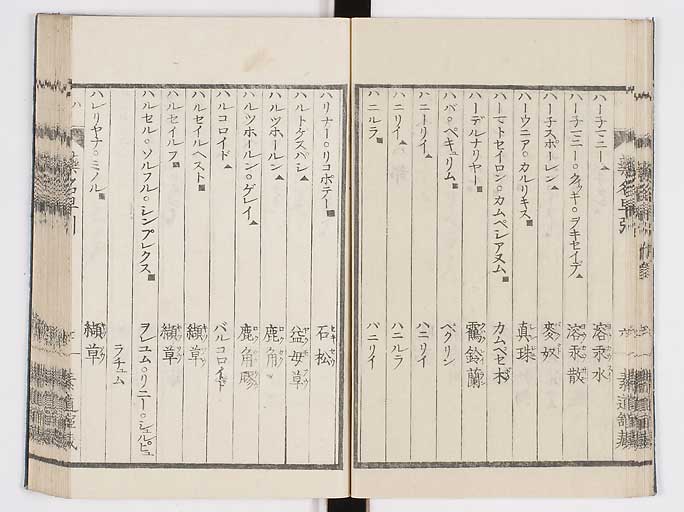 ハーチマニー▲ 溶汞水
ハーチマニー○クッキ○ヲキセイデ▲ 溶汞散
ハーチスポーレン▲ 麥奴
ハーウニア○カルリキス■ 真珠
ハーマトセイロン○カムペシアヌム■ カムペセ木
ハーデルナリヤー■ 鶴鈴蘭
ハバ○ペキュリム■ ベクリン
ハニーリイ▲ ハニリイ
ハニリイ▲ ハニルラ
ハニルラ■ バニリイ
藥名早引
ハリナー○リコポデー■ 石松
ハルトゲスパン▲ 益母草
ハルツホールン▲ 鹿角
ハルツホールン○ゲレイ▲ 鹿角膠
ハルコロイド▲ バルコロイド
ハルセイルヘスト■ 纈草
ハルセイルフ■ 纈草
ハルセル○ソルフル○シンプレクス■ ヲレユム○リニー○シュルピュ
ラチュム
ハレリヤナ○ミノル■ 纈草